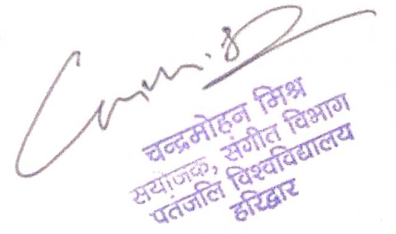 चन्द्रमोहन मिश्र
सयोजक, संगीत विभाग
पतंजलि विश्वविद्यालय
हरिद्वार